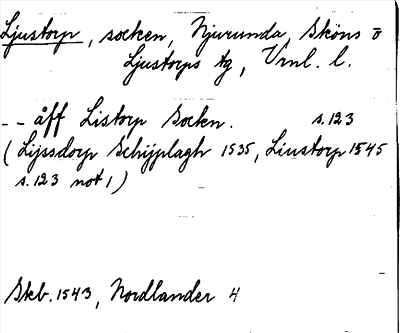 Ljustorp, socken, Njurunda, Sköns o̅
Ljustorps tg, Vrnl. l.
-- åff Listorp Sockn. s.123
(Lijssdorp Schijplagh 1535, Liustorp 1545
s.123 not 1)
Skb. 1543, Nordlander 4